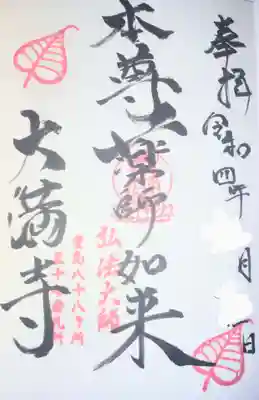 奉拝 令和四年 月 日
本尊 薬師如来
弘法大師
豊島八十八ヶ所
第三十番札所
大満寺